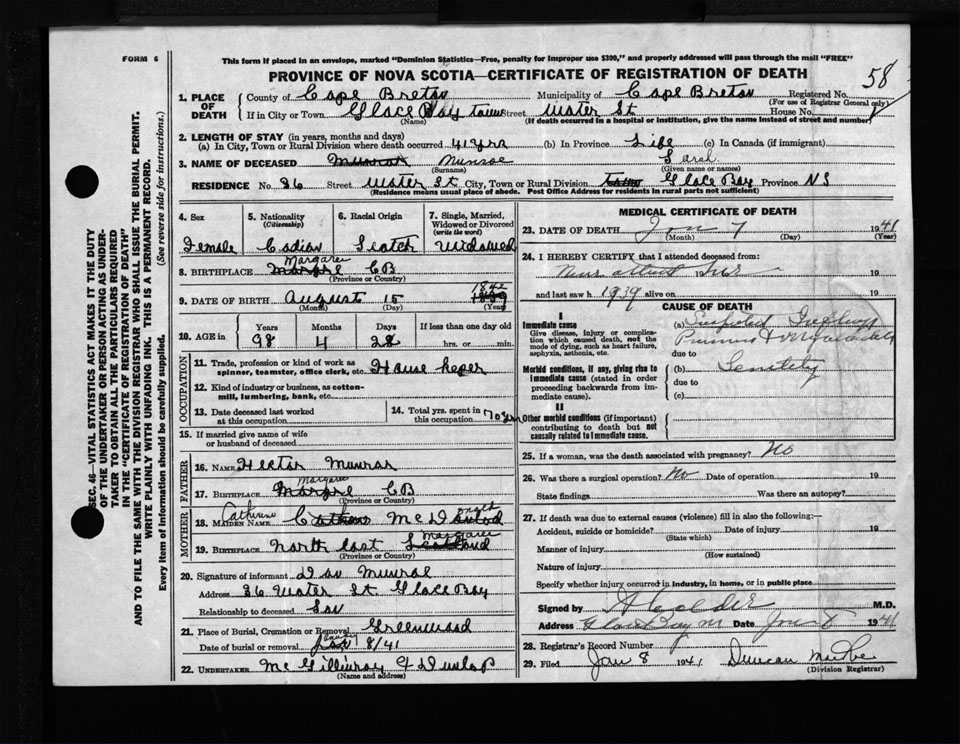 58
FORM 6
This form if placed in an envelope, marked "Dominion Statistics—Free, penalty for improper use $300," and properly addressed will pass through the mail "FREE"
PROVINCE OF NOVA SCOTIA—CERTIFICATE OF REGISTRATION OF DEATH
1. PLACE OF DEATH County of Cape Breton Municipality of Cape Breton Registered No.
(For use of Registrar General only)
If in City or Town Glace Bay town Street Water St House No.
(Name) (If death occurred in a hospital or institution, give the name instead of street and number)
2. LENGTH OF STAY (in years, months and days)
(a) In City, Town or Rural Division where death occurred 41 yrs (b) In Province Life (c) In Canada (if immigrant)
3. NAME OF DECEASED Munroe Sarah
(Surname) (Given name or names)
RESIDENCE No. 36 Street Water St City, Town or Rural Division Glace Bay Province NS
(Residence means usual place of abode. Post Office Address for residents in rural parts not sufficient)
4. Sex 5. Nationality 6. Racial Origin 7. Single, Married, Widowed or Divorced
(Citizenship) (write the word)
Female Cadian Scotch Widowed
Margaree
8. BIRTHPLACE CB
(Province or Country)
1842
9. DATE OF BIRTH August 15
(Month) (Day) (Year)
10. AGE in Years Months Days If less than one day old
98 4 28 hrs. or min.
OCCUPATION
11. Trade, profession or kind of work as spinner, teamster, office clerk, etc. House keper
12. Kind of industry or business, as cotton-mill, lumbering, bank, etc.
13. Date deceased last worked at this occupation 14. Total yrs. spent in this occupation 70 yrs
15. If married give name of wife or husband of deceased
FATHER
16. NAME Hector Munroe
Margaree
17. BIRTHPLACE CB
(Province or Country)
MOTHER
Catherine
18. MAIDEN NAME McD
19. BIRTHPLACE North East Margaree
(Province or Country)
20. Signature of informant Dan Munroe
Address 36 Water St. Glace Bay
Relationship to deceased Son
21. Place of Burial, Cremation or Removal Greenwood
Date of burial or removal 8/41
22. UNDERTAKER McGillivray & Dunlop
(Name and address)
MEDICAL CERTIFICATE OF DEATH
23. DATE OF DEATH Jan 7 1941
(Month) (Day) (Year)
24. I HEREBY CERTIFY that I attended deceased from:
19 19
and last saw h 1939 alive on 19
CAUSE OF DEATH
I
Immediate cause
Give disease, injury or complication which caused death, not the mode of dying, such as heart failure, asphyxia, asthenia, etc.
(a)
due to
Morbid conditions, if any, giving rise to immediate cause (stated in order proceeding backwards from immediate cause).
(b) Senility
due to
(c)
II
Other morbid conditions (if important) contributing to death but not causally related to immediate cause.
25. If a woman, was the death associated with pregnancy? No
26. Was there a surgical operation? No Date of operation 19
State findings Was there an autopsy?
27. If death was due to external causes (violence) fill in also the following:
Accident, suicide or homicide? Date of injury 19
(State which)
Manner of injury
(How sustained)
Nature of injury
Specify whether injury occurred in industry, in home, or in public place
Signed by M.D.
Address Glace Bay Date Jan 8 1941
28. Registrar's Record Number
29. Filed Jan 8 1941 Duncan
(Division Registrar)
SEC. 46—VITAL STATISTICS ACT MAKES IT THE DUTY
OF THE UNDERTAKER OR PERSON ACTING AS UNDER-
TAKER TO OBTAIN ALL THE PARTICULARS REQUIRED
IN THE "CERTIFICATE OF REGISTRATION OF DEATH"
AND TO FILE THE SAME WITH THE DIVISION REGISTRAR WHO SHALL ISSUE THE BURIAL PERMIT.
WRITE PLAINLY WITH UNFADING INK. THIS IS A PERMANENT RECORD.
Every item of information should be carefully supplied. (See reverse side for instructions.)